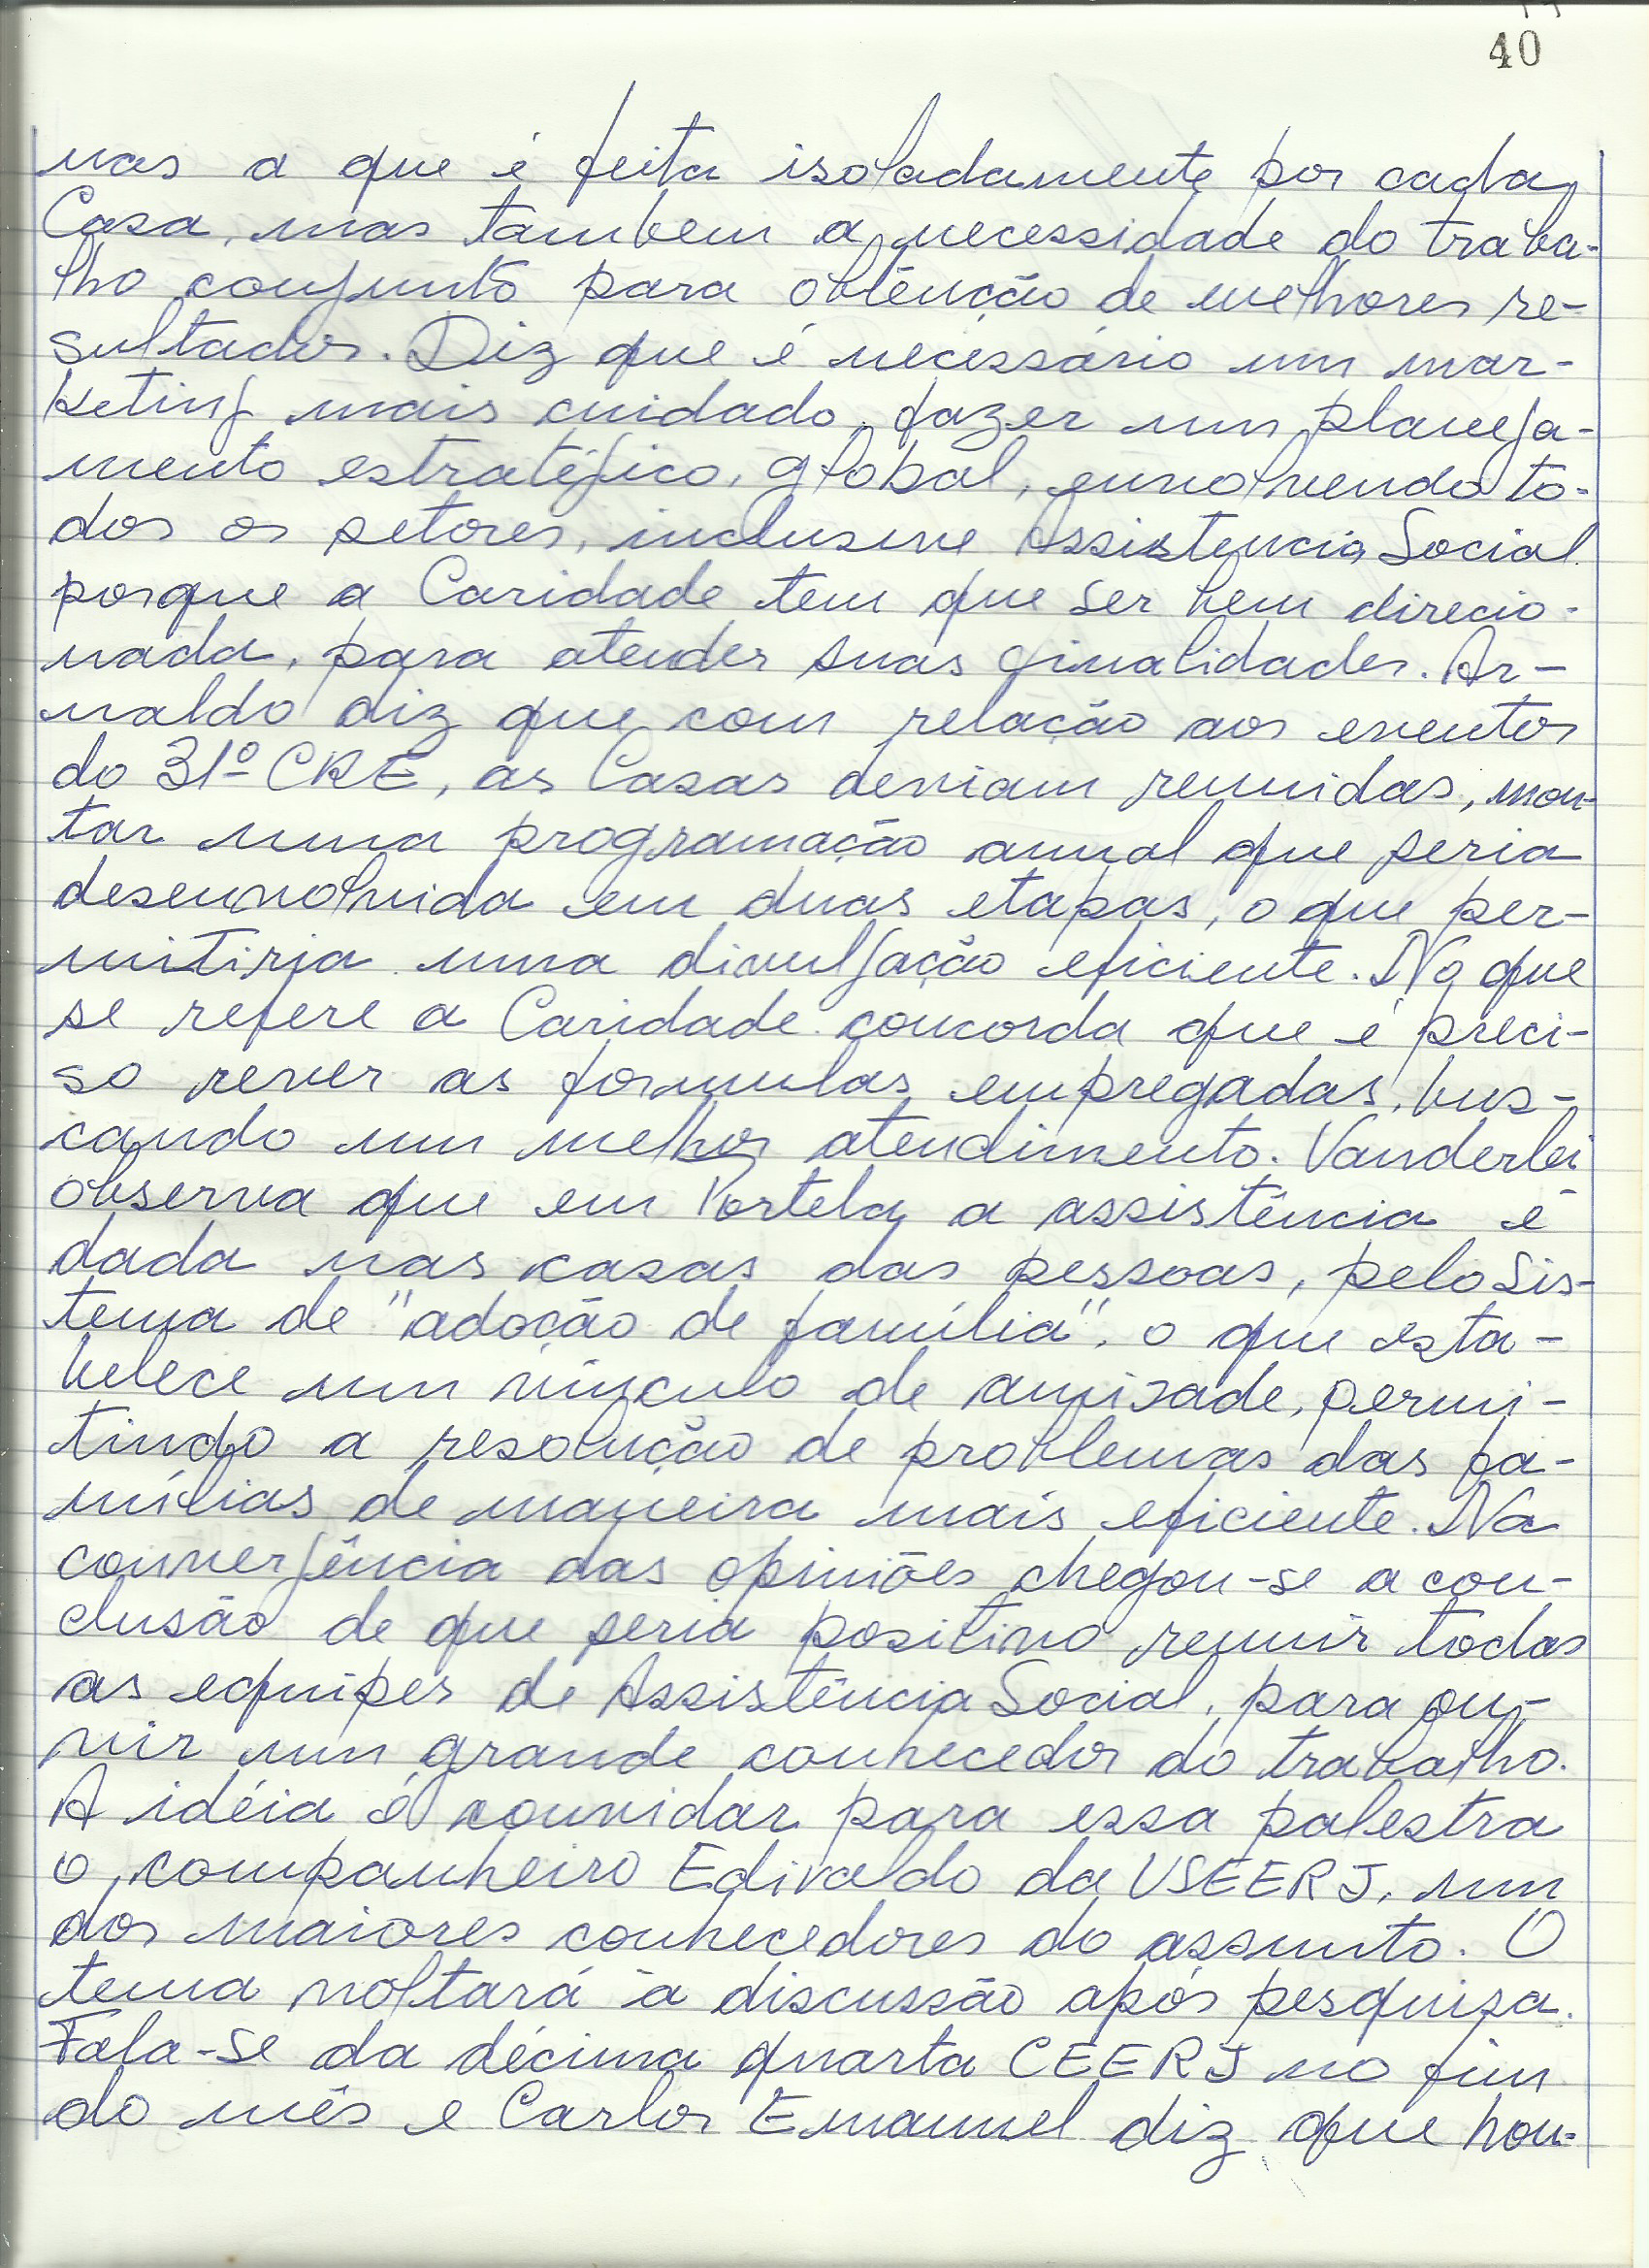 40
nas a que é feita isoladamente por cada
Casa, mas tambem a necessidade do traba-
lho conjunto para obtenção de melhores re-
sultados. Diz que é necessário um mar-
keting mais cuidado, fazer um planeja-
mento estratégico, global, envolvendo to-
dos os setores, inclusive Assistencia Social
porque a Caridade tem que ser bem direcio-
nada, para atender suas finalidades. Ar-
naldo diz que com relação aos eventos
do 31º CRE, as Casas deviam reunidas, mon-
tar uma programação anual que seria
desenvolvida em duas etapas, o que per-
mitiria uma divulgação eficiente. No que
se refere a Caridade concorda que é preci-
so rever as formulas empregadas, bus-
cando um melhor atendimento. Vanderlei
observa que em Portela a assistência é
dada nas casas das pessoas, pelo Sis-
tema de "adoção de família", o que esta-
belece um vínculo de amizade, permi-
tindo a resolução de problemas das fa-
mílias de maneira mais eficiente. Na
convergência das opiniões chegou-se a con-
clusão de que seria positivo reunir todas
as equipes de Assistência Social, para ou-
vir um grande conhecedor do trabalho.
A idéia é convidar para essa palestra
o companheiro Edivaldo da USEERJ, um
dos maiores conhecedores do assunto. O
tema voltará à discussão após pesquisa.
Fala-se da décima quarta CEERJ no fim
do mês e Carlos Emanuel diz que hou-